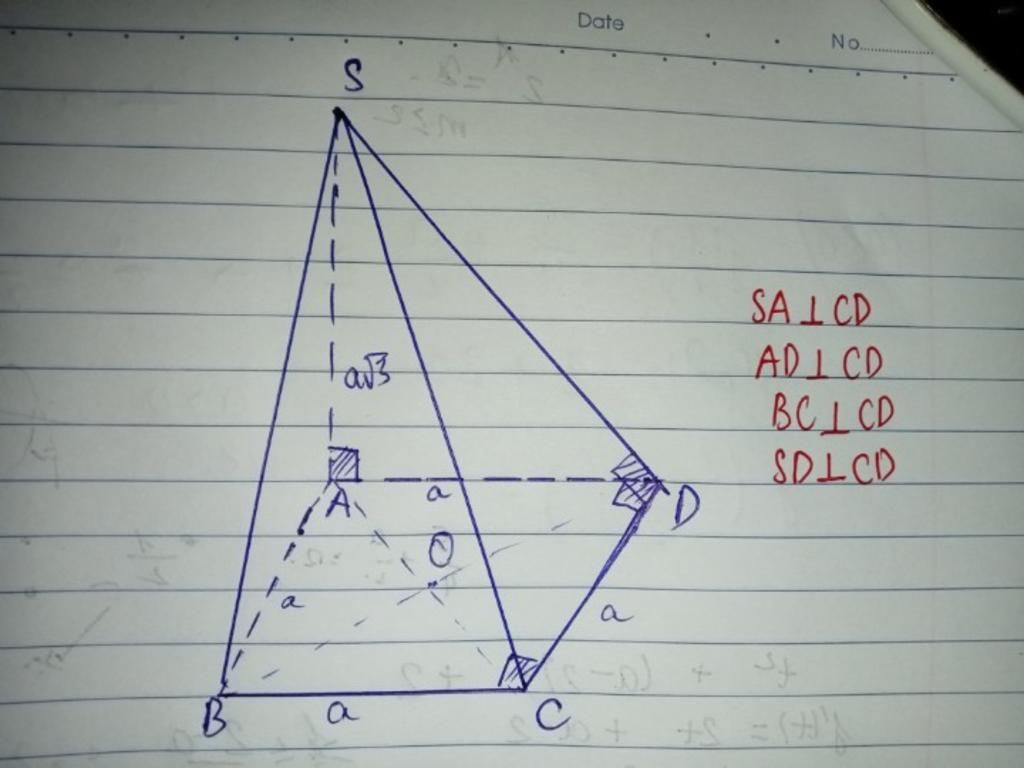 Date
No
S
a√3
SA⊥CD
AD⊥CD
BC⊥CD
SD⊥CD
A
a
D
O
a
a
B
a
C